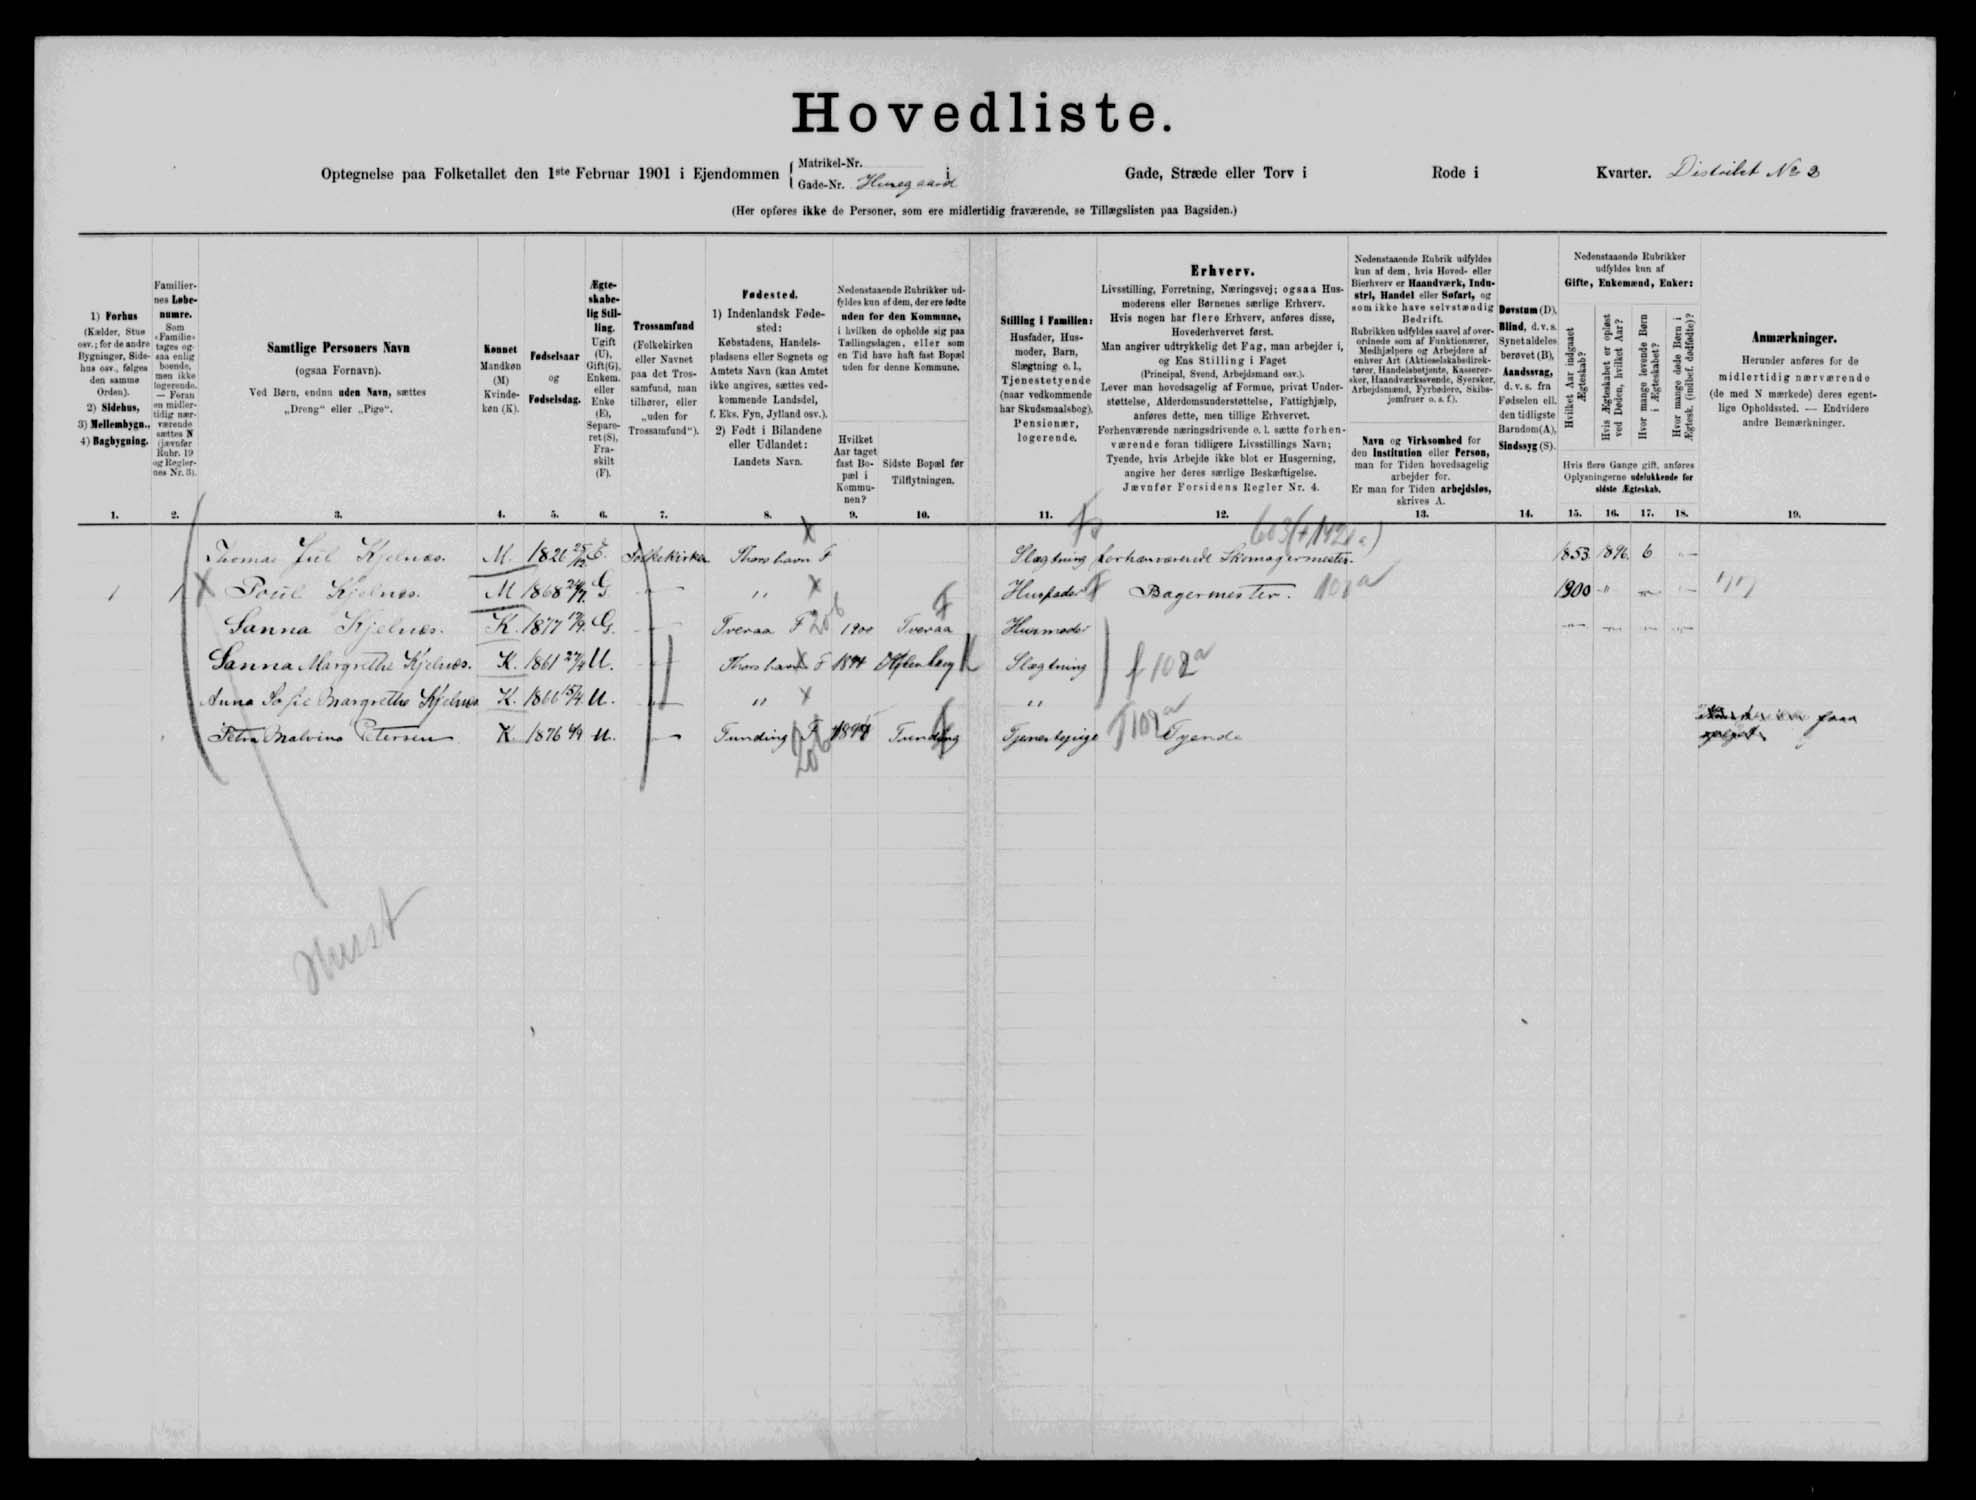 Hovedliste.
Optegnelse paa Folketallet den 1ste Februar 1901 i Ejendommen { Matrikel-Nr. i
Gade-Nr. Gade, Stræde eller Torv i Rode i Kvarter. Distrikt No 2
(Her opføres ikke de Personer, som ere midlertidig fraværende, se Tillægslisten paa Bagsiden.)
1) Forhus (Kælder, Stue osv.; for de andre Bygninger, Sidehus osv., følges den samme Orden). 2) Sidehus, 3) Mellembygn., 4) Bagbygning.
Familiernes Løbenumre. Som «Familie» tages ogsaa enlig boende, men ikke logerende. — Foran en midlertidig nærværende sættes N (jævnfør Rubr. 19 og Reglernes Nr. 3).
Samtlige Personers Navn (ogsaa Fornavn). Ved Børn, endnu uden Navn, sættes „Dreng“ eller „Pige“.
Kønnet Mandkøn (M) Kvindekøn (K).
Fødselsaar og Fødselsdag.
Ægteskabelig Stilling. Ugift (U), Gift(G), Enkem. eller Enke (E), Separeret (S), Fraskilt (F).
Trossamfund (Folkekirken eller Navnet paa det Trossamfund, man tilhører, eller „uden for Trossamfund“).
Fødested. 1) Indenlandsk Fødested: Købstadens, Handelspladsens eller Sognets og Amtets Navn (kan Amtet ikke angives, sættes vedkommende Landsdel, f. Eks. Fyn, Jylland osv.). 2) Født i Bilandene eller Udlandet: Landets Navn.
Nedenstaaende Rubrikker udfyldes kun af dem, der ere fødte uden for den Kommune, i hvilken de opholde sig paa Tællingsdagen, eller som en Tid have haft fast Bopæl uden for denne Kommune.
Hvilket Aar taget fast Bopæl i Kommunen?
Sidste Bopæl før Tilflytningen.
Stilling i Familien: Husfader, Husmoder, Barn, Slægtning o. l., Tjenestetyende (naar vedkommende har Skudsmaalsbog), Pensionær, logerende.
Erhverv.
Livsstilling, Forretning, Næringsvej; ogsaa Husmoderens eller Børnenes særlige Erhverv.
Hvis nogen har flere Erhverv, anføres disse, Hovederhvervet først.
Man angiver udtrykkelig det Fag, man arbejder i, og Ens Stilling i Faget (Principal, Svend, Arbejdsmand osv.).
Lever man hovedsagelig af Formue, privat Understøttelse, Alderdomsunderstøttelse, Fattighjælp, anføres dette, men tillige Erhvervet.
Forhenværende næringsdrivende o. l. sætte forhenværende foran tidligere Livsstillings Navn;
Tyende, hvis Arbejde ikke blot er Husgerning, angive her deres særlige Beskæftigelse.
Jævnfør Forsidens Regler Nr. 4.
Nedenstaaende Rubrik udfyldes kun af dem, hvis Hoved- eller Bierhverv er Haandværk, Industri, Handel eller Søfart, og som ikke have selvstændig Bedrift.
Rubrikken udfyldes saavel af overordnede som af Funktionærer, Medhjælpere og Arbejdere af enhver Art (Aktieselskabsdirektører, Handelsbetjente, Kasserersker, Haandværkssvende, Syersker, Arbejdsmænd, Fyrbødere, Skibsjomfruer o. s. f.).
Navn og Virksomhed for den Institution eller Person, man for Tiden hovedsagelig arbejder for.
Er man for Tiden arbejdsløs, skrives A.
Døvstum (D), Blind, d. v. s. Synet aldeles berøvet (B), Aandssvag, d. v. s. fra Fødselen ell. den tidligste Barndom (A), Sindssyg (S).
Nedenstaaende Rubrikker udfyldes kun af Gifte, Enkemænd, Enker:
Hvilket Aar indgaaet Ægteskab?
Hvis Ægteskabet er opløst ved Døden, hvilket Aar?
Hvor mange levende Børn i Ægteskabet?
Hvor mange døde Børn i Ægtesk. (indbef. dødfødte)?
Hvis flere Gange gift, anføres Oplysningerne udelukkende for sidste Ægteskab.
Anmærkninger.
Herunder anføres for de midlertidig nærværende (de med N mærkede) deres egentlige Opholdssted. — Endvidere andre Bemærkninger.
1. 2. 3. 4. 5. 6. 7. 8. 9. 10. 11. 12. 13. 14. 15. 16. 17. 18. 19.
Thomas Juel Kjelnæs. M. 1826 25/12 E. Folkekirken Thorshavn F Slægtning forhenværende Skomagermester. 1853 1896 6 —
1 1 Poul Kjelnæs. M 1868 G — „ Husfader Bagermester. 108a 1900 „ — —
Sanna Kjelnæs. K. 1877 G. — Tveraa F 1900 Tveraa Husmoder — — — —
Sanna Margrethe Kjelnæs. K. 1861 U. — Thorshavn F 1894 Slægtning
Anna Sofie Margrethe Kjelnæs K. 1866 15/4 U. — „ „
Petra Malvina Petersen K. 1876 4/9 U. — Funding F Funding Tjenestepige Tyende